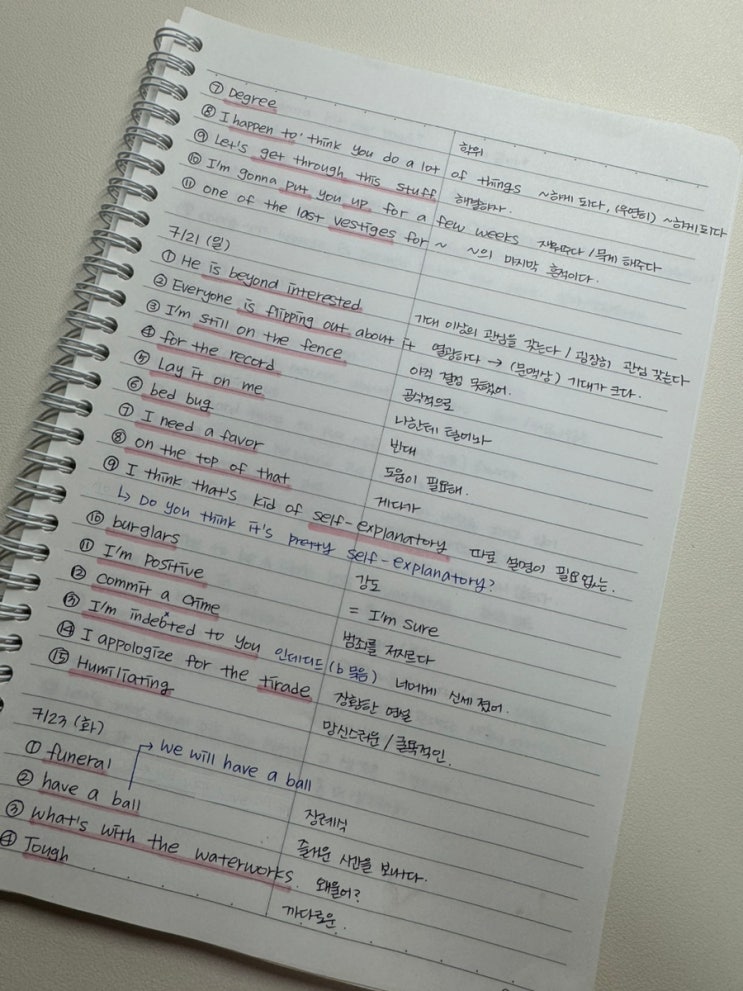 ⑦ Degree 학위
⑧ I happen to think you do a lot of things ~하게 되다, (우연히) ~하게되다
⑨ Let's get through this stuff 해결하자.
⑩ I'm gonna put you up for a few weeks 재워주다 / 묵게 해주다
⑪ one of the last vestiges for ~ ~의 마지막 흔적이다.
7/21 (일)
① He is beyond interested 기대 이상의 관심을 갖는다 / 굉장히 관심 갖는다
② Everyone is flipping out about it 열광하다 → (문맥상) 기대가 크다.
③ I'm still on the fence 아직 결정 못했어.
④ for the record 공식적으로
⑤ Lay it on me 나한테 털어놔
⑥ bed bug 빈대
⑦ I need a favor 도움이 필요해.
⑧ on the top of that 게다가
⑨ I think that's kid of self-explanatory 따로 설명이 필요없는.
↳ Do you think it's pretty self-explanatory?
⑩ burglars 강도
⑪ I'm Positive = I'm sure
⑫ Commit a crime 범죄를 저지르다
⑬ I'm indebted to you 인데티드 (b 묵음) 너에게 신세 졌어.
⑭ I appologize for the tirade 장황한 연설
⑮ Humiliating 망신스러운 / 굴욕적인.
7/23 (화)
① funeral 장례식
→ We will have a ball
② have a ball 즐거운 시간을 보내다.
③ what's with the waterworks. 왜울어?
④ Tough 까다로운.